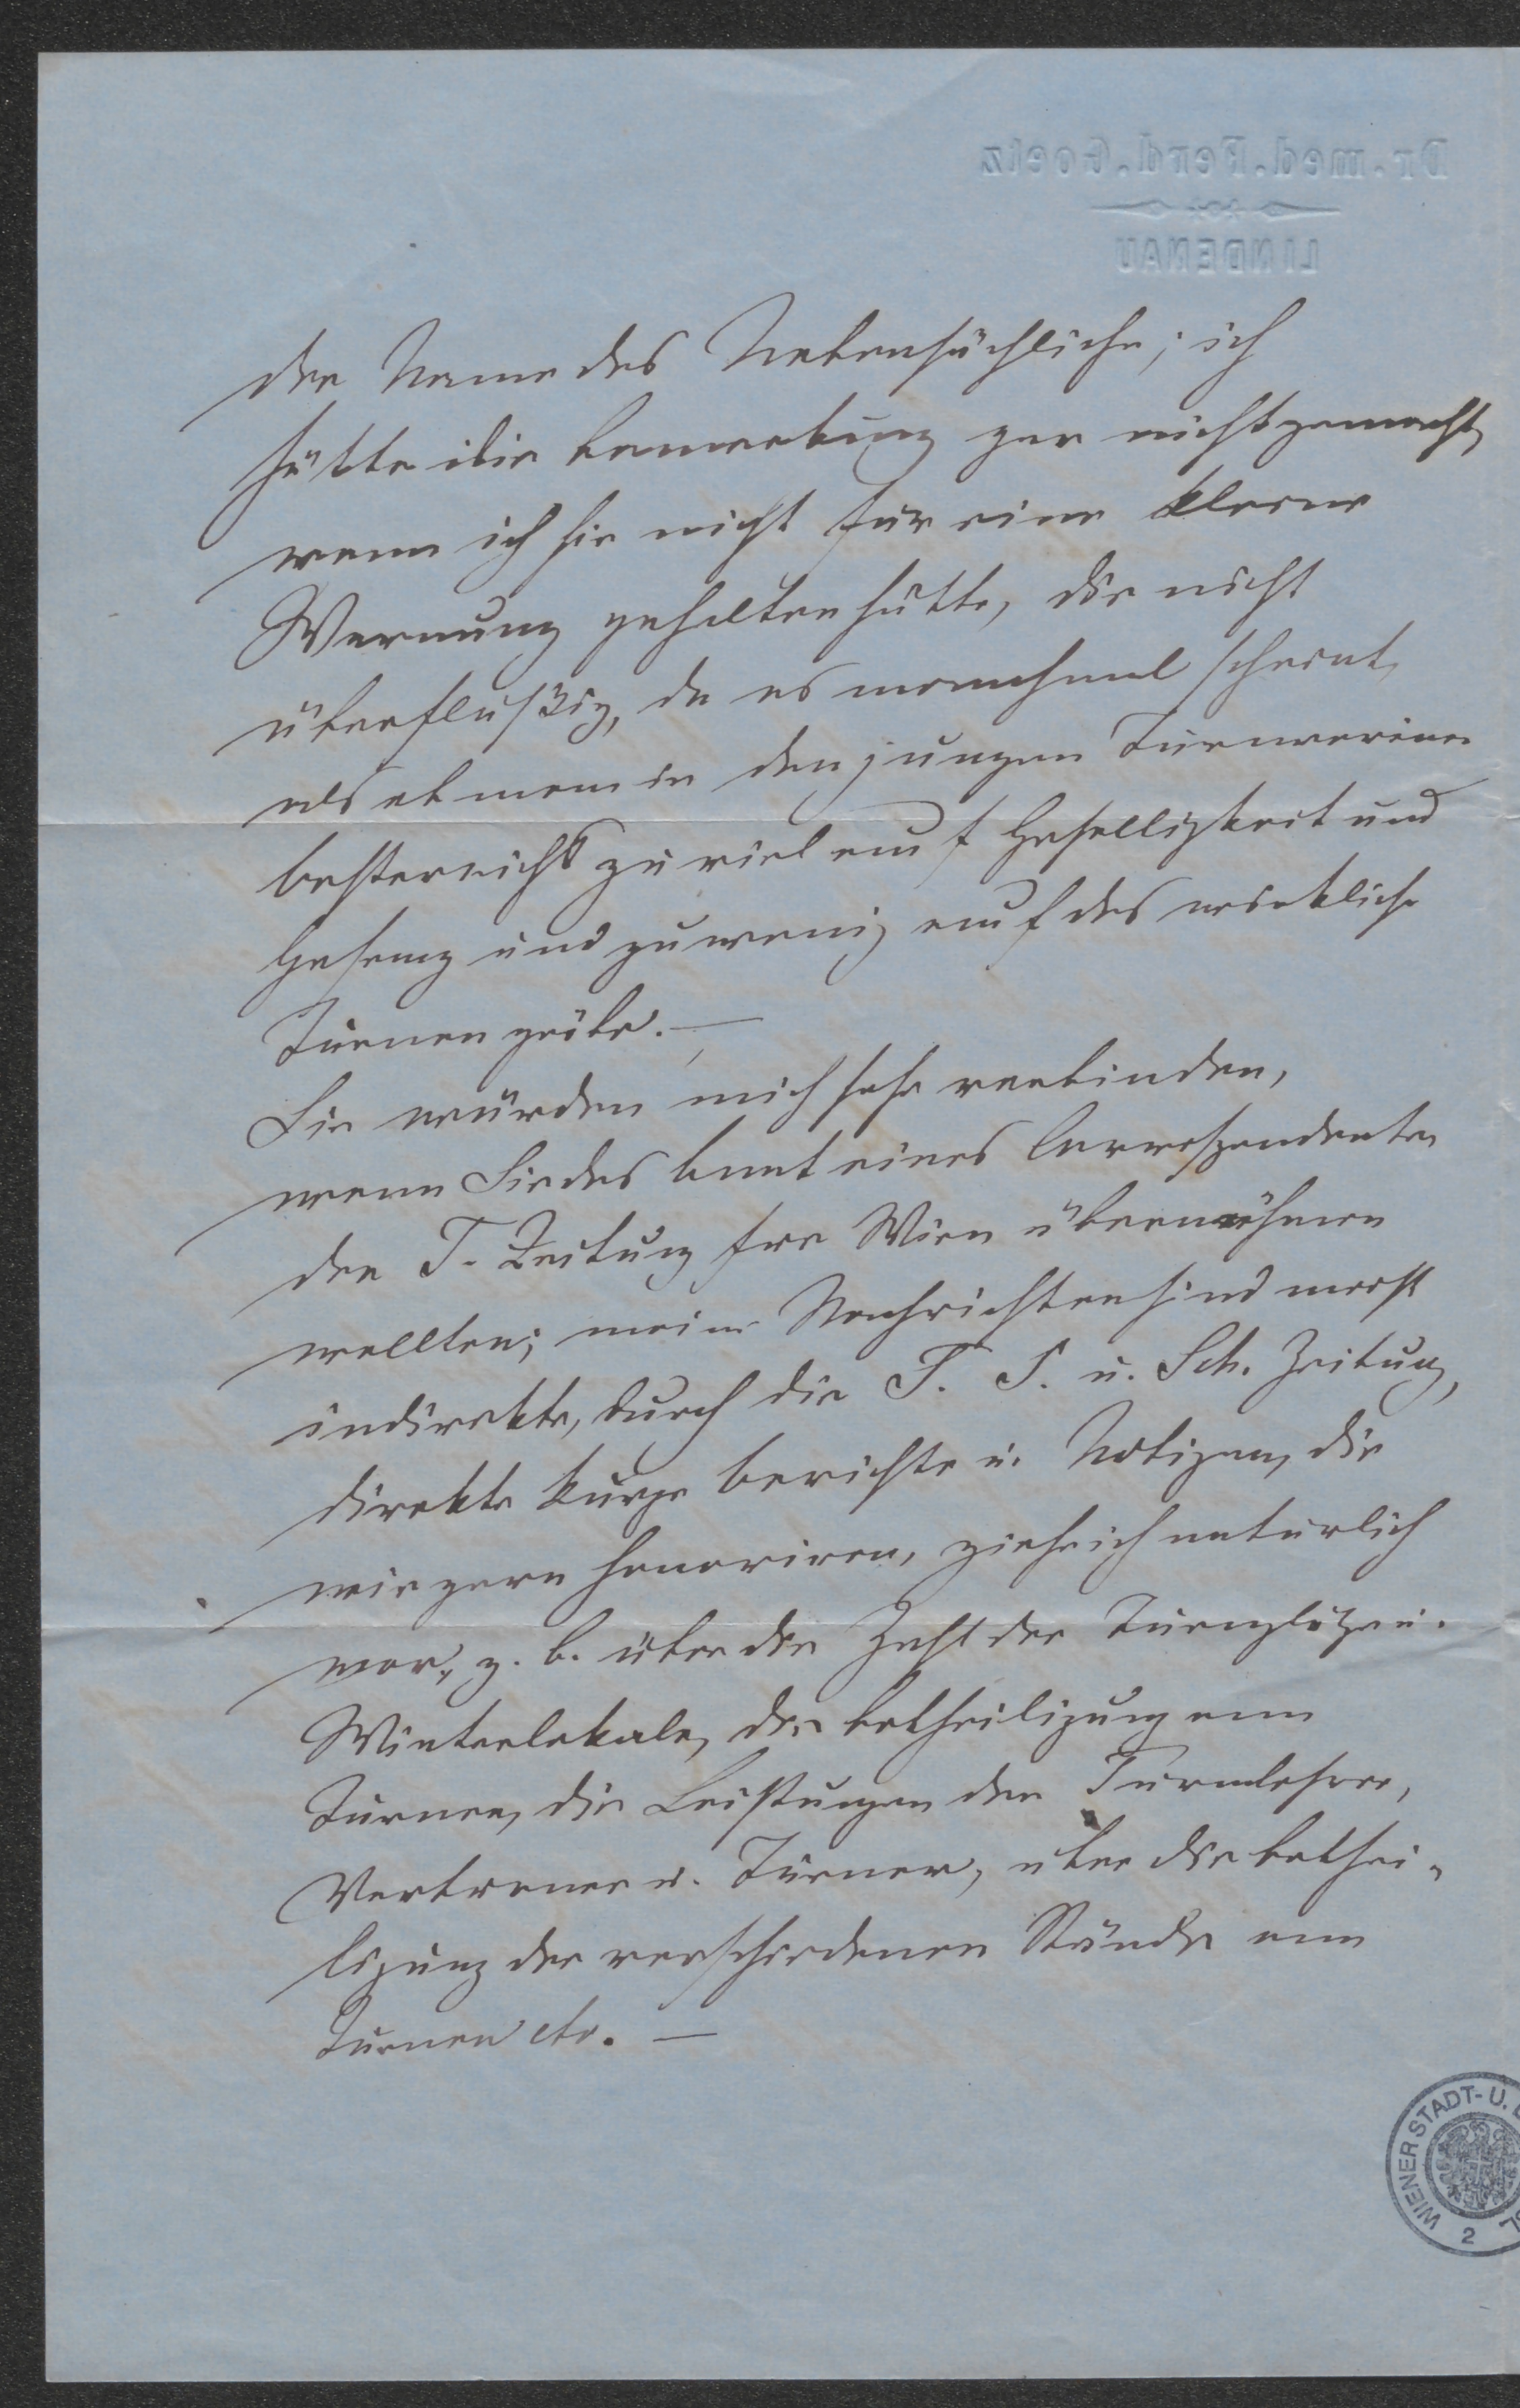 Dr. med. Ferd. Goetz
LINDENAU
der Name das Nebensächliche; ich
hätte die Bemerkung gar nicht gemacht,
wenn ich sie nicht für eine kleine
Warnung gehalten hätte, die nicht
überflüßig, da es manchmal scheint,
als ob man in den jungen Turnvereinen
Oesterreichs zu viel auf Geselligkeit und
Gesang und zu wenig auf das wirkliche
Turnen gäbe. —
Sie würden mich sehr verbinden,
wenn Sie das Amt eines Correspondenten
der T. Zeitung für Wien übernehmen
wollten; meine Nachrichten sind meist
indirekte, durch die T. F. u. Sch. Zeitung,
direkte kurze Berichte u. Notizen, die
wir gern honoriren, ziehe ich natürlich
vor, z. B. über die Zahl der Turnplätze u.
Winterlokale, die Betheiligung am
Turnen, die Leistungen der Turnlehrer,
Vorturner u. Turner, über die Bethei-
ligung der verschiedenen Stände am
Turnen etc. —
WIENER STADT- U.
2